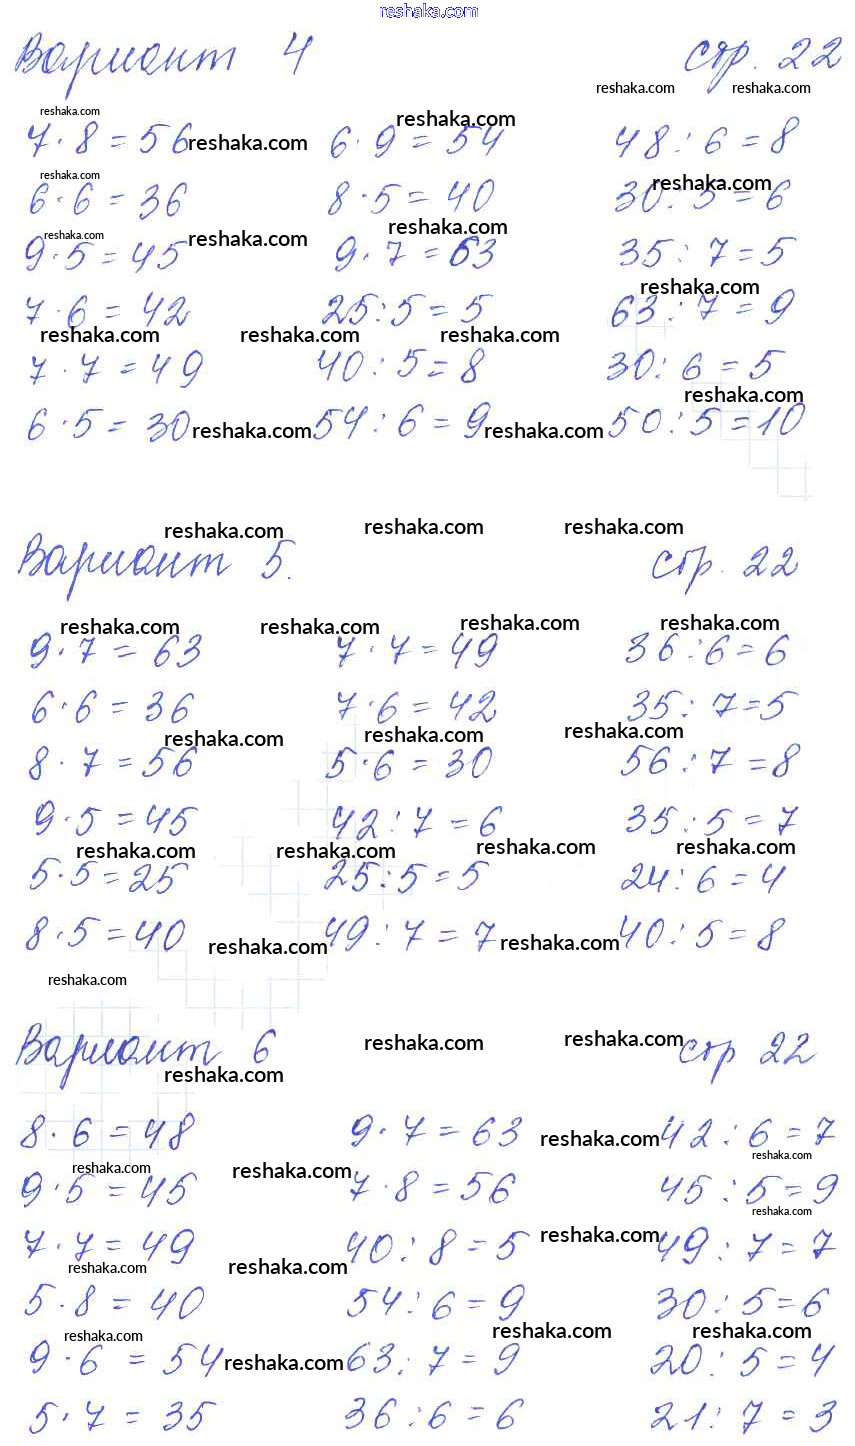 reshaka.com
Вариант 4 стр. 22
7 · 8 = 56 6 · 9 = 54 48 : 6 = 8
6 · 6 = 36 8 · 5 = 40 30 : 5 = 6
9 · 5 = 45 9 · 7 = 63 35 : 7 = 5
7 · 6 = 42 25 : 5 = 5 63 : 7 = 9
7 · 7 = 49 40 : 5 = 8 30 : 6 = 5
6 · 5 = 30 54 : 6 = 9 50 : 5 = 10
Вариант 5. стр. 22
9 · 7 = 63 7 · 7 = 49 36 : 6 = 6
6 · 6 = 36 7 · 6 = 42 35 : 7 = 5
8 · 7 = 56 5 · 6 = 30 56 : 7 = 8
9 · 5 = 45 42 : 7 = 6 35 : 5 = 7
5 · 5 = 25 25 : 5 = 5 24 : 6 = 4
8 · 5 = 40 49 : 7 = 7 40 : 5 = 8
Вариант 6 стр 22
8 · 6 = 48 9 · 7 = 63 42 : 6 = 7
9 · 5 = 45 7 · 8 = 56 45 : 5 = 9
7 · 7 = 49 40 : 8 = 5 49 : 7 = 7
5 · 8 = 40 54 : 6 = 9 30 : 5 = 6
9 · 6 = 54 63 : 7 = 9 20 : 5 = 4
5 · 7 = 35 36 : 6 = 6 21 : 7 = 3